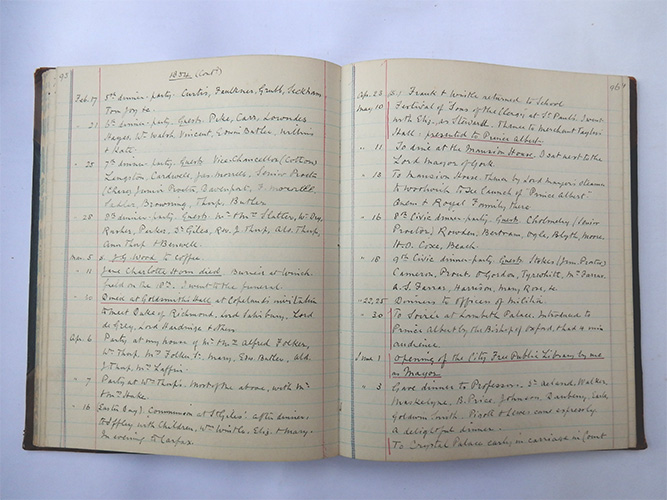 93
1854 (Cont.)
Feb. 17 5th dinner-party. Curtis, Faulkner, Grubb, Seckham,
Tom Joy &c.
" 21 6th dinner-party. Guests. Pike, Carr, Lowndes,
Walsh, Vincent, Edwin Butler, William
& Kate.
" 25 7th dinner-party. Guests. Vice-Chancellor (Cotton)
Langston, Cardwell, Jas. Morrell, Senior Proctor
Junior Proctor, Davenport, F. Morrell,
Sadler, Browning, Thorp, Butler.
" 28 8th dinner-party. Guests. Mr & Mrs Slatter, Wm
Rusher, Parker, St. Giles, Rev. J. Thorp, Ald. Thorp,
Ann Thorp &
Mar. 5 J. G. Wood to Coffee.
" 11 Jane Charlotte Horn died, Buried at Winch-
field on the 18th. I went to the funeral.
" 30 Dined at Goldsmiths Hall at Copeland's invitation
to meet Duke of Richmond, Lord Salisbury, Lord
de Grey, Lord Hardinge & others
Apr. 6 Party at my house of Mr & Mrs Alfred Folker,
Wm Thorp, Mr Folker Sr., Mary, Edw. Butler, Ald.
J. Thorp, Mr Laffin.
" 7 Party at Wm Thorp's, most of the above, with Mr
& Mrs Hake.
" 16 Easter Day). Communion at St Giles'. After dinner,
to Iffley with Children, Wm Whistle, Eliz. & Mary.
In evening to Carfax.
94
Apr. 23 Frank & Whistle returned to School
May 10 Festival of Sons of the Clergy at St. Paul's. I went
with Eliz. as Steward. Thence to Merchant Taylors
Hall: presented to Prince Albert.
" 11 To dine at the Mansion House. I sat next to the
Lord Mayor of York.
" 13 To Mansion House. Thence by Lord Mayor's steamer
to Woolwich to see launch of "Prince Albert"
Queen & Royal Family there.
" 16 8th Civic dinner-party. Guests. Cholmeley (Senior
Proctor), Rowden, Bertram, Ogle, Blyth, Moore,
H.O. Coxe, Beach.
" 18 9th Civic dinner-party. Guests. Stokes (Jun. Proctor)
Cameron, Prout, O'Gordon, Tyrwhitt, Mr Farrar,
A. S. Farrar, Harrison, Mary, Rose, &c.
" 22, 25 Dinners to officers of Militia.
" 30 To Soirée at Lambeth Palace. Introduced to
Prince Albert by the Bishop of Oxford, had a nice
audience.
June 1 Opening of the City Free Public Library by me
as Mayor
" 3 Gave dinner to Professors. Dr Acland, Walker
Maskelyne, B. Price, Johnson, Daubeny, Earle,
Goldwin Smith. Pigott & Lewes came expressly.
A delightful dinner.
To Crystal Palace early, in carriage in Court